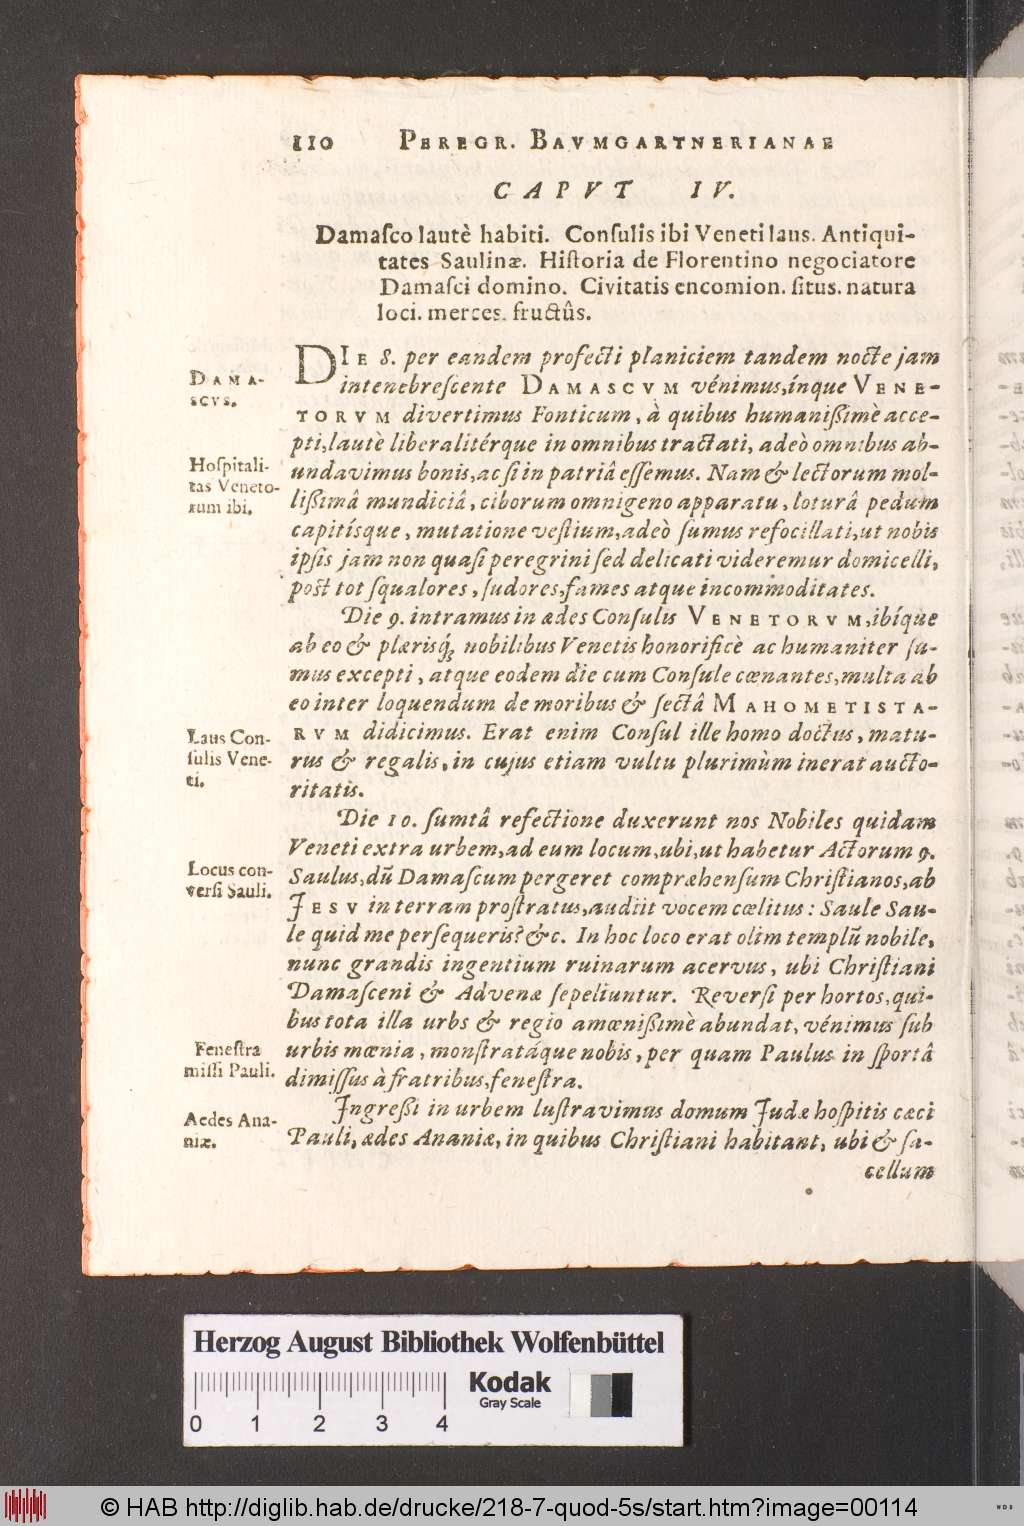 110 PEREGR. BAVMGARTNERIANAE
CAPVT IV.
Damaſco lautè habiti. Conſulis ibi Veneti laus. Antiqui-
tates Saulinæ. Hiſtoria de Florentino negociatore
Damaſci domino. Civitatis encomion. ſitus. natura
loci. merces. fructûs.
DIE 8. per eandem profecti planiciem tandem nocte jam
DAMA-
SCVS.
intenebreſcente DAMASCVM vénimus,ínque VENE-
TORVM divertimus Fonticum, à quibus humaniſſimè acce-
pti,lautè liberalitérque in omnibus tractati, adeò omnibus ab-
Hoſpitali-
tas Veneto-
rum ibi.
undavimus bonis,ac ſi in patriâ eſſemus. Nam & lectorum mol-
liſſimâ mundiciâ, ciborum omnigeno apparatu, loturâ pedum
capitíſque, mutatione veſtium,adeò ſumus refocillati,ut nobis
ipſis jam non quaſi peregrini ſed delicati videremur domicelli,
poſt tot ſqualores, ſudores,fames atque incommoditates.
Die 9. intramus in ædes Conſulis VENETORVM,ibíque
ab eo & plæriſq́; nobilibus Venetis honorificè ac humaniter ſu-
mus excepti, atque eodem die cum Conſule cœnantes,multa ab
eo inter loquendum de moribus & ſectâ MAHOMETISTA-
Laus Con-
ſulis Vene-
ti.
RVM didicimus. Erat enim Conſul ille homo doctus, matu-
rus & regalis, in cujus etiam vultu plurimùm inerat aucto-
ritatis.
Die 10. ſumtâ refectione duxerunt nos Nobiles quidam
Veneti extra urbem,ad eum locum,ubi,ut habetur Actorum 9.
Locus con-
verſi Sauli.
Saulus,dũ Damaſcum pergeret compræhenſum Chriſtianos,ab
JESV in terram proſtratus,audiit vocem cœlitus: Saule Sau-
le quid me perſequeris? &c. In hoc loco erat olim templũ nobile,
nunc grandis ingentium ruinarum acervus, ubi Chriſtiani
Damaſceni & Advenæ ſepeliuntur. Reverſi per hortos,qui-
bus tota illa urbs & regio amœniſſimè abundat, vénimus ſub
Feneſtra
miſſi Pauli.
urbis mœnia, monſtratáque nobis, per quam Paulus in ſportâ
dimiſſus à fratribus,feneſtra.
Aedes Ana-
niæ.
Jngreſſi in urbem luſtravimus domum Judæ hoſpitis cæci
Pauli, ædes Ananiæ, in quibus Chriſtiani habitant, ubi & ſa-
cellum
Herzog August Bibliothek Wolfenbüttel
Kodak
Gray Scale
0 1 2 3 4
© HAB http://diglib.hab.de/drucke/218-7-quod-5s/start.htm?image=00114